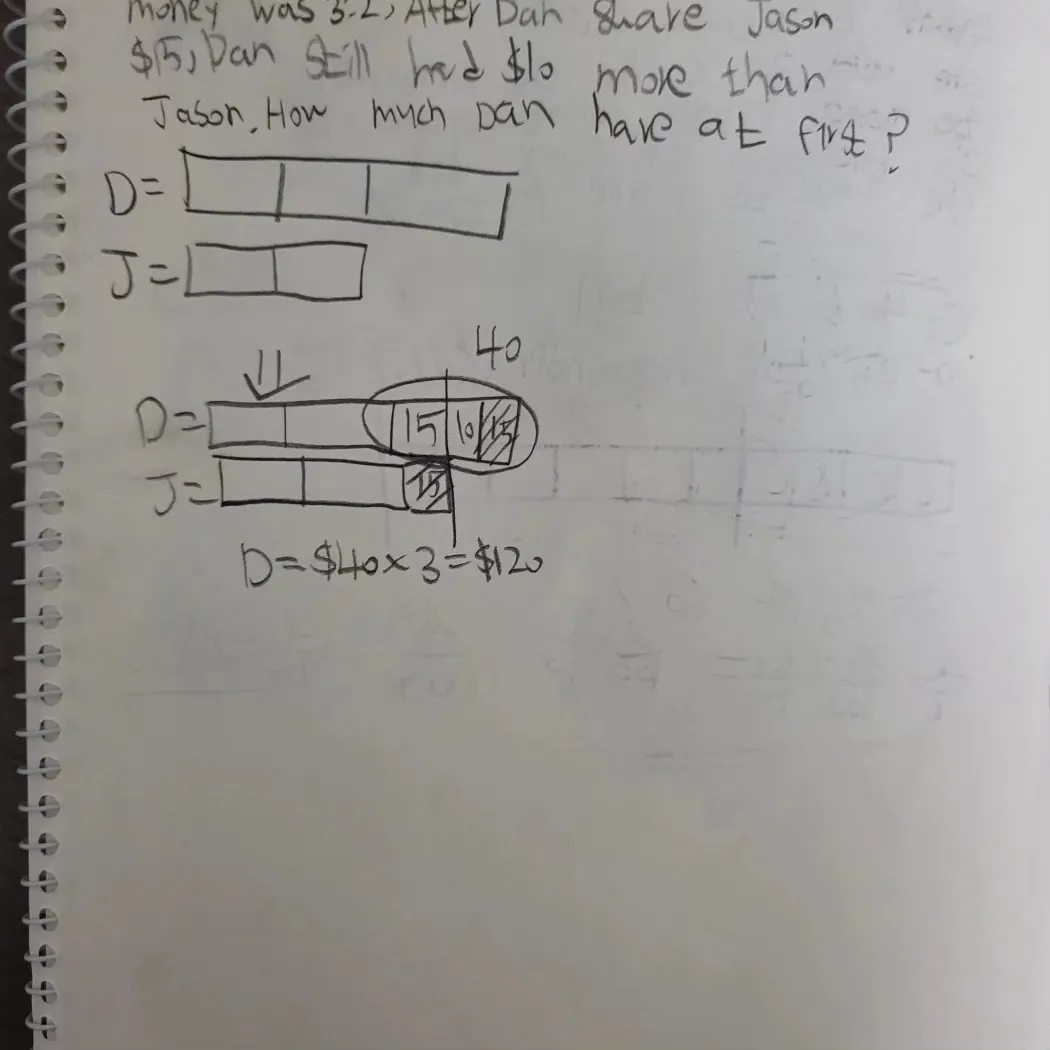 money was 3:2, After Dan share Jason
$15, Dan still had $10 more than
Jason. How much Dan have at first?
D=
J=
40
D= 15 10 15
J= 15
D=$40×3=$120